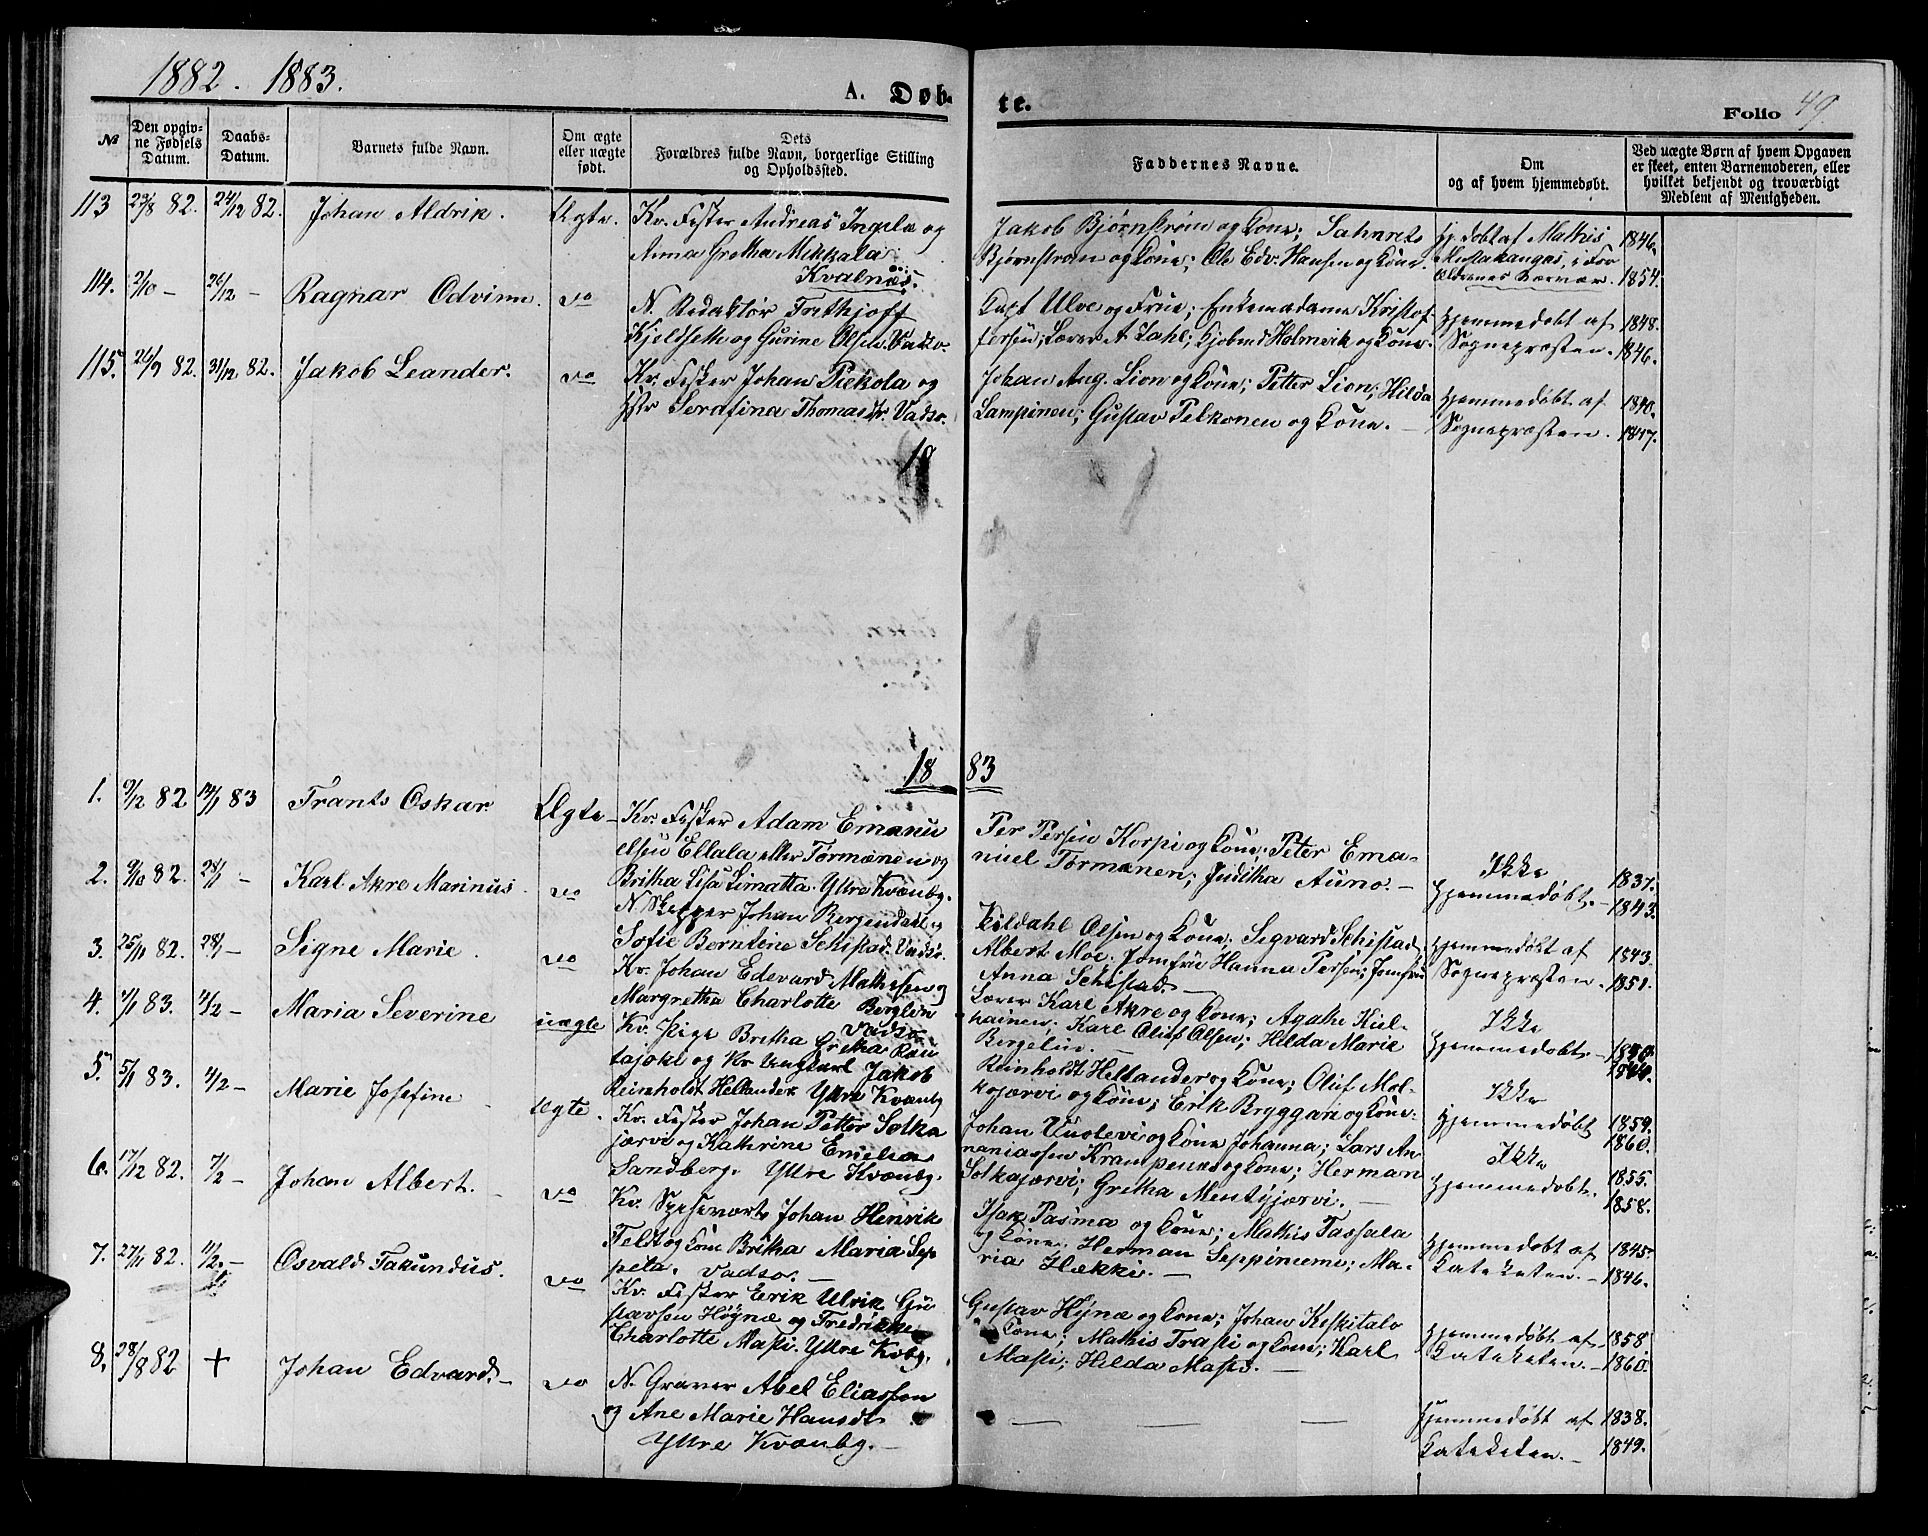 1882. 1883.
A. Døb-
te.
Folio 49.
№
Den opgiv-
ne Fødsels
Datum.
Daabs-
Datum.
Barnets fulde Navn.
Om ægte
eller uægte
født.
Dets
Forældres fulde Navn, borgerlige Stilling
og Opholdssted.
Faddernes Navne.
Om
og af hvem hjemmedøbt.
Ved uægte Børn af hvem Opgaven
er skeet, enten Barnemoderen, eller
hvilket bekjendt og troværdigt
Medlem af Menigheden.
113 29/8 82. 24/12 82. Johan Aldrik. Ægte.
Kv. Fisker Andreas Ingelæ og
Anna Gretha Mikkala
Kvalnæs.
Jakob Bjørnstrøm og Kone;
Bjørnstrøm og Kone; Ole Edv. Hansen og Kone.
Hj. døbt af Mathis
Mustakangas, i For
ældrenes Nærvær.
1846.
1854.
114. 2/10 — 26/12 — Ragnar Odvinn. do
N. Redaktør Frithjoff
Kjeldseth og Gurine Olsen. Vadsø.
Capt Ulve og Frue; Enkemadame Kristof
fersen; Lærer A Dahl; Kjøbmd Holmvik og Kone.
Hjemmedøbt af
Sognepræsten.
1848.
1846.
115. 26/9 82. 31/12 82. Jakob Leander. do
Kv. Fisker Johan Piekola og
Hstr Serafina Thomasdtr. Vadsø.
Johan Aug. Lion og Kone; Petter Lion; Hilda
Lampinen; Gustav Pelkonen og Kone. —
Hjemmedøbt af
Sognepræsten.
1840.
1847.
18
18 83
1. 9/12 82 14/1 83 Frants Oskar Ægte
Kv. Fisker Adam Emanu
elsen Ellala eller Tormænen og
Britha Lisa Simatta. Yttre Kvænbg.
Per Persen Korpi og Kone; Peter Ema-
nuel Tormanen; Juditha Auno. —
Ikke
Hjemmedøbt. —
1837.
1843.
2. 9/10 82. 28/1 — Karl Akre Marinus. do
N Skipper Johan Bergendahl og
Sofie Berntine Schistad. Vadsø.
Kildahl Olsen og Kone; Sigvard Schistad.
Albert Moe. Jomfru Hanna Persen; Jomfru
Anna Schistad. —
Hjemmedøbt af
Sognepræsten.
1843.
1851.
3. 25/11 82. 28/1 — Signe Marie. do
Kv. Johan Edevard Mathisen og
Margretha Charlotte Berglin
Vadsø
Lærer Karl Akre og Kone; Agathe Kiel-
hainen; Karl Oluf Olsen; Hilda Marie
Bergelin. —
Ikke
Hjemmedøbt. —
4. 1/1 83. 4/2 — Maria Severine uægte
Kv. Pige Britha Gretha Rau
tajoki og Kv Ungkarl Jakob
Reinholdt Hellander. Yttre Kvænbg
Reinholdt Hellander og Kone; Oluf Mol-
kojærvi og Kone; Erik Bryggari og Kone.
Ikke
Hjemmedøbt
1859.
1860.
5. 5/1 83. 4/2 — Marie Josefine — Ægte.
Kv. Fisker Johan Petter Solka
jærvi og Kathrine Emelia
Sandberg. Yttre Kvænbg.
Johan Uuolevi og Kone Johanna; Lars An
naniassen Krampenæ og Kone; Herman
Solkajærvi; Gretha Mentyjærvi. —
Ikke
Hjemmedøbt.
1855.
1858.
6. 17/12 82. 7/2 — Johan Albert. — do
Kv. Spisevært Johan Henrik
Feldt og Kone Britha Maria Sep
peta. Vadsø. —
Isak Pasma og Kone; Mathis Tassala
og Kone. Herman Seppinieme; Ma-
ria Hækki. —
Hjemmedøbt af
Kateketen. —
1845.
1846.
7. 27/11 82. 11/2. — Osvald Fakundus. do
Kv. Fisker Erik Ulrik Gu
stavsen Høynæ og Fredrikke
Charlotte Masi. Yttre Kvbg.
Gustav Hynæ og Kone; Johan Keskitalo
og Kone; Mathis Trasti og Kone; Karl
Masi; Hilda Masi. —
Hjemmedøbt af
Kateketen. —
1858
1860.
8. 28/8 82 + Johan Edvard. — do
N. Graver Abel Eliassen
og Ane Marie Hansdt.
Yttre Kvænbg. —
— — —
Hjemmedøbt af
Kateketen. —
1838.
1849.